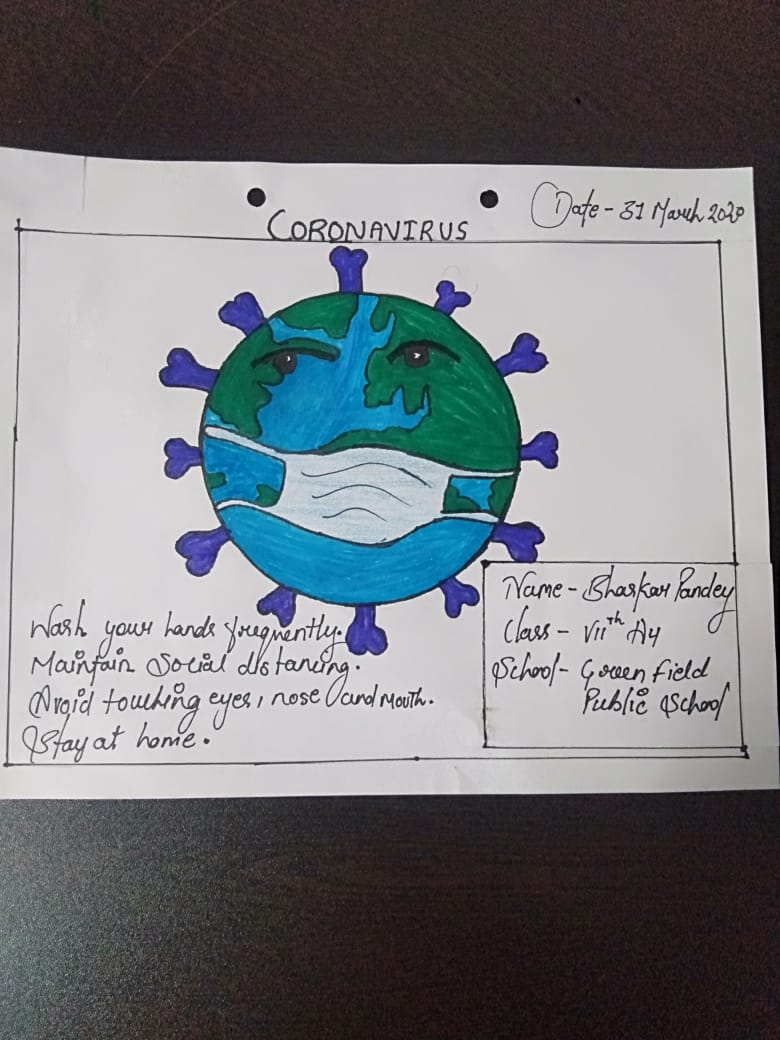 Date - 31 March 2020
CORONAVIRUS
Wash your hands frequently.
Maintain Social distancing.
Avoid touching eyes, nose and mouth.
Stay at home.
Name - Bhaskar Pandey
Class - VIIth A4
School - Green Field
Public School